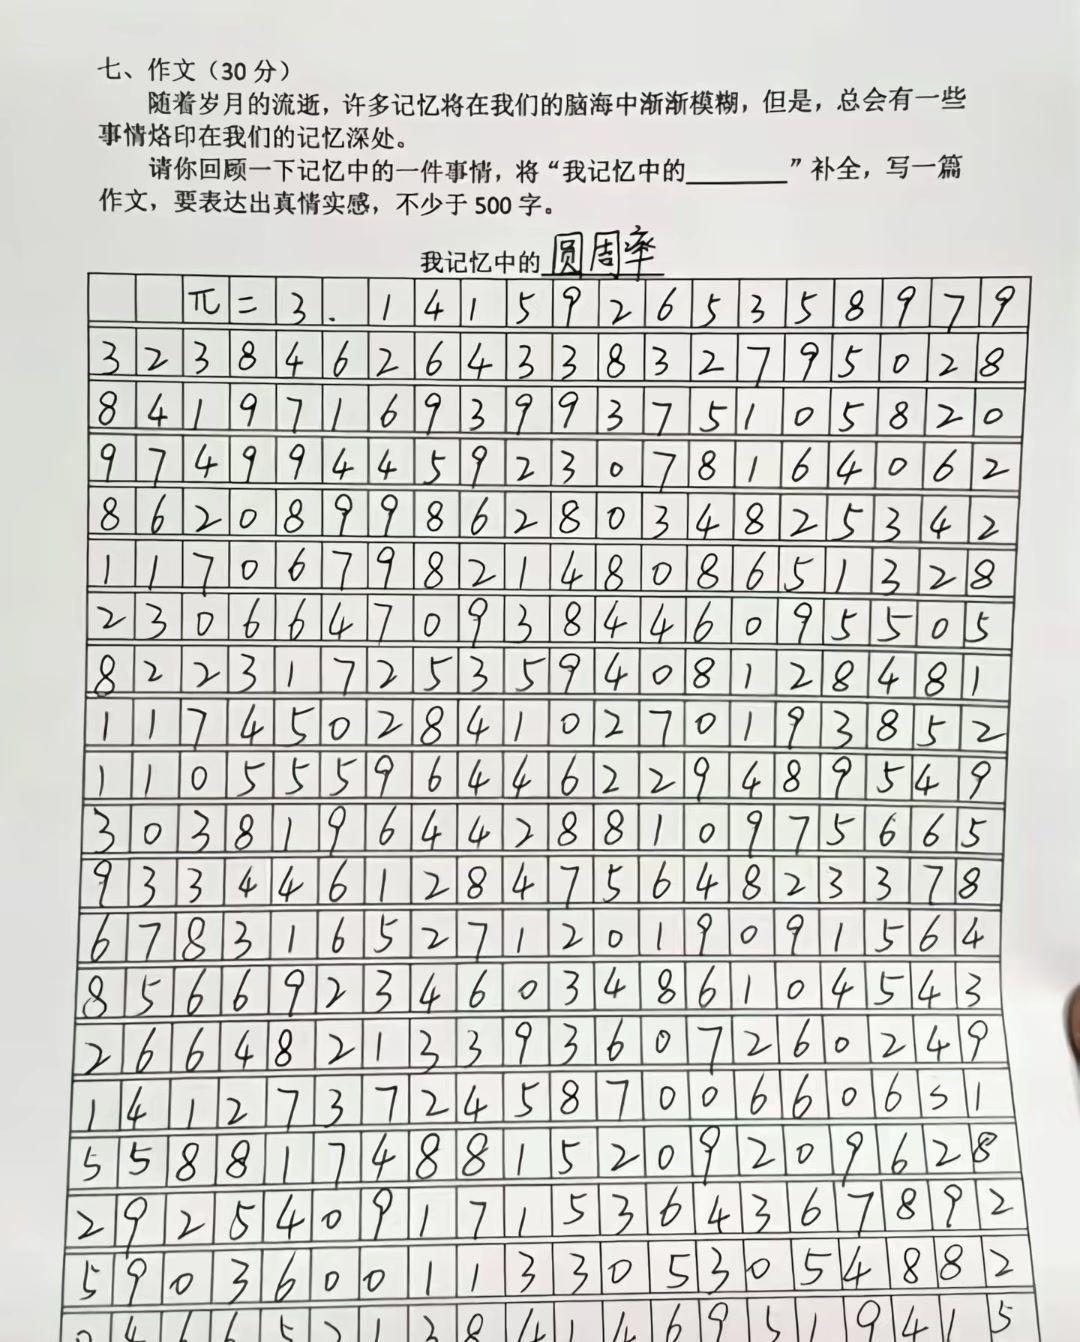 七、作文（30 分）
随着岁月的流逝，许多记忆将在我们的脑海中渐渐模糊，但是，总会有一些
事情烙印在我们的记忆深处。
请你回顾一下记忆中的一件事情，将“我记忆中的________”补全，写一篇
作文，要表达出真情实感，不少于 500 字。
我记忆中的圆周率
π=3.14159265358979
32384626433832795028
84197169399375105820
97499445923078164062
86208998628034825342
11706798214808651328
23066470938446095505
82231725359408128481
11745028410270193852
11055596446229489549
30381964428810975665
93344612847564823378
67831652712019091564
85669234603486104543
26648213393607260249
14127372458700660651
55881748815209209628
29254091715364367892
59036001133053054882
04665213841469519415